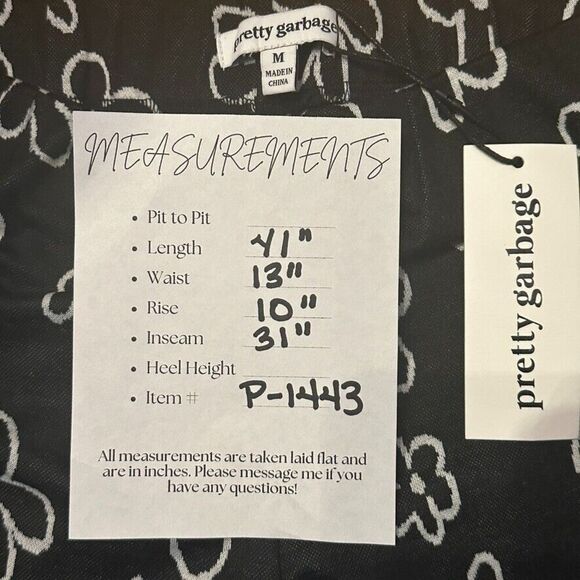 pretty garbage
M
MADE IN
CHINA
MEASUREMENTS
• Pit to Pit
• Length 41"
• Waist 13"
• Rise 10"
• Inseam 31"
• Heel Height
• Item # P-1443
All measurements are taken laid flat and
are in inches. Please message me if you
have any questions!
pretty garbage